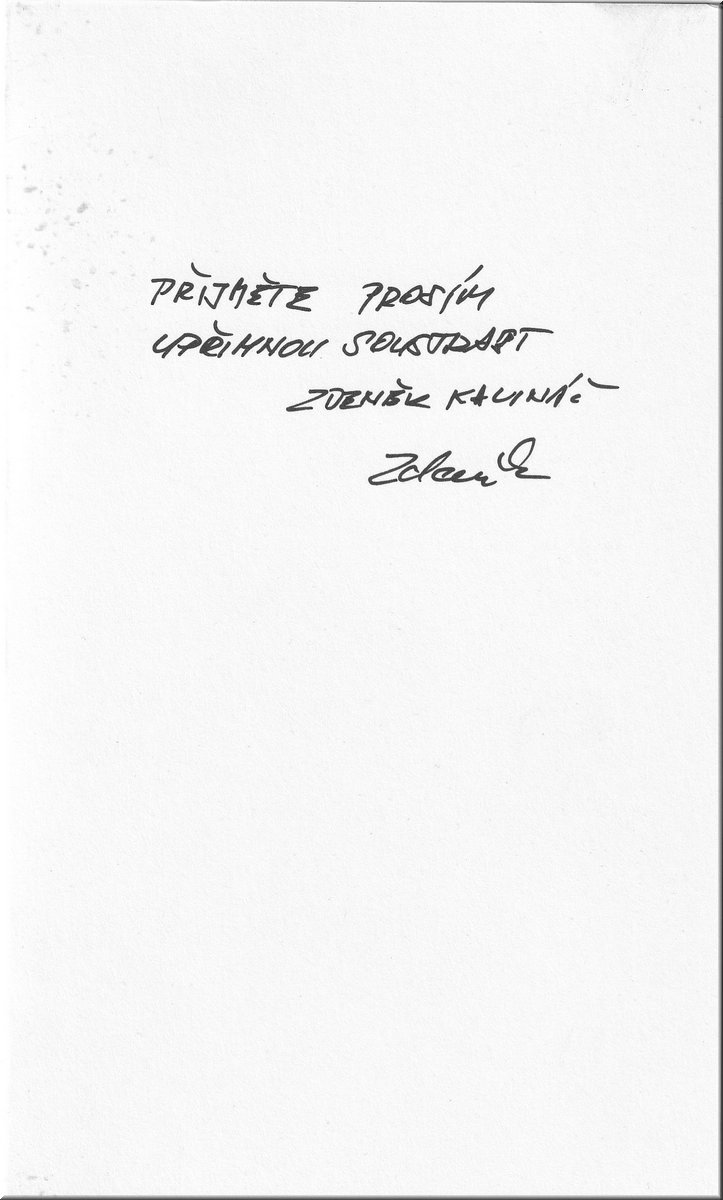 PŘIJMĚTE PROSÍM
UPŘIMNOU SOUSTRAST
ZDENĚK KALINÁČ
Zdeněk